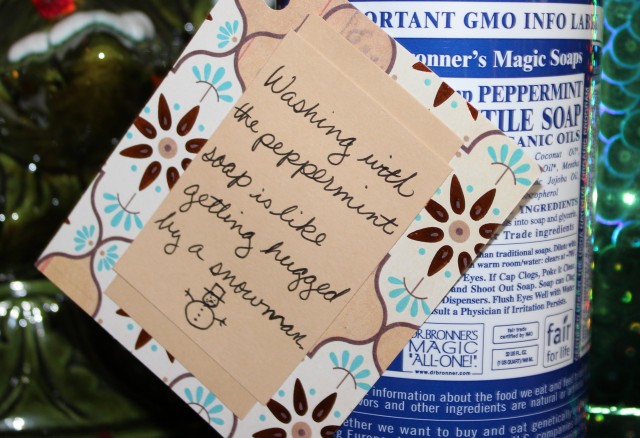 Washing with
the peppermint
soap is like
getting hugged
by a snowman
ORTANT GMO INFO LAB
Bronner's Magic Soaps
PEPPERMINT
TILE SOAP
GANIC OILS
Coconut Oil*
Oil*, Mentha
Jojoba Oil,
INGREDIENTS
into soap and glycerin
Trade ingredients
than traditional soaps. Dilute with
warm room/water: clears at
Eyes. If Cap Clogs, Poke it Clear.
and Shoot Out Soap. Soap can
Dispensers. Flush Eyes Well with Water
sult a Physician if Irritation Persists.
DR. BRONNER'S
MAGIC
"ALL-ONE!"
www.drbronner.com
fair trade
certified by IMO
32 US FL OZ.
(1 US QUART) 946 ML
fair
for life
information about the food we eat and
vors and other ingredients are natural or
ether we want to buy and eat genetically